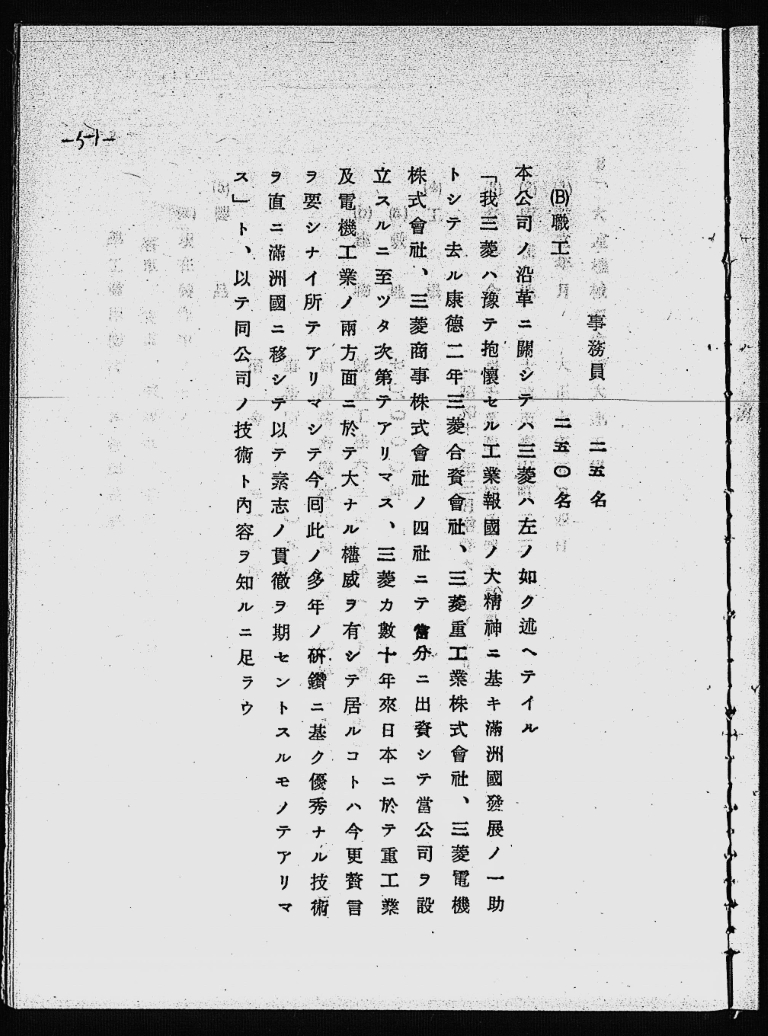 -51-
事務員　二五名
(B)職工　二五〇名
本公司ノ沿革ニ關シテハ三菱ハ左ノ如ク述ヘテイル
「我三菱ハ豫テ抱懷セル工業報國ノ大精神ニ基キ滿洲國發展ノ一助
トシテ去ル康德二年三菱合資會社、三菱重工業株式會社、三菱電機
株式會社、三菱商事株式會社ノ四社ニテ當分ニ出資シテ當公司ヲ設
立スルニ至ツタ次第テアリマス、三菱カ數十年來日本ニ於テ重工業
及電機工業ノ兩方面ニ於テ大ナル權威ヲ有シテ居ルコトハ今更贅言
ヲ要シナイ所テアリマシテ今回此ノ多年ノ研鑽ニ基ク優秀ナル技術
ヲ直ニ滿洲國ニ移シテ以テ素志ノ貫徹ヲ期セントスルモノテアリマ
ス」ト、以テ同公司ノ技術ト內容ヲ知ルニ足ラウ